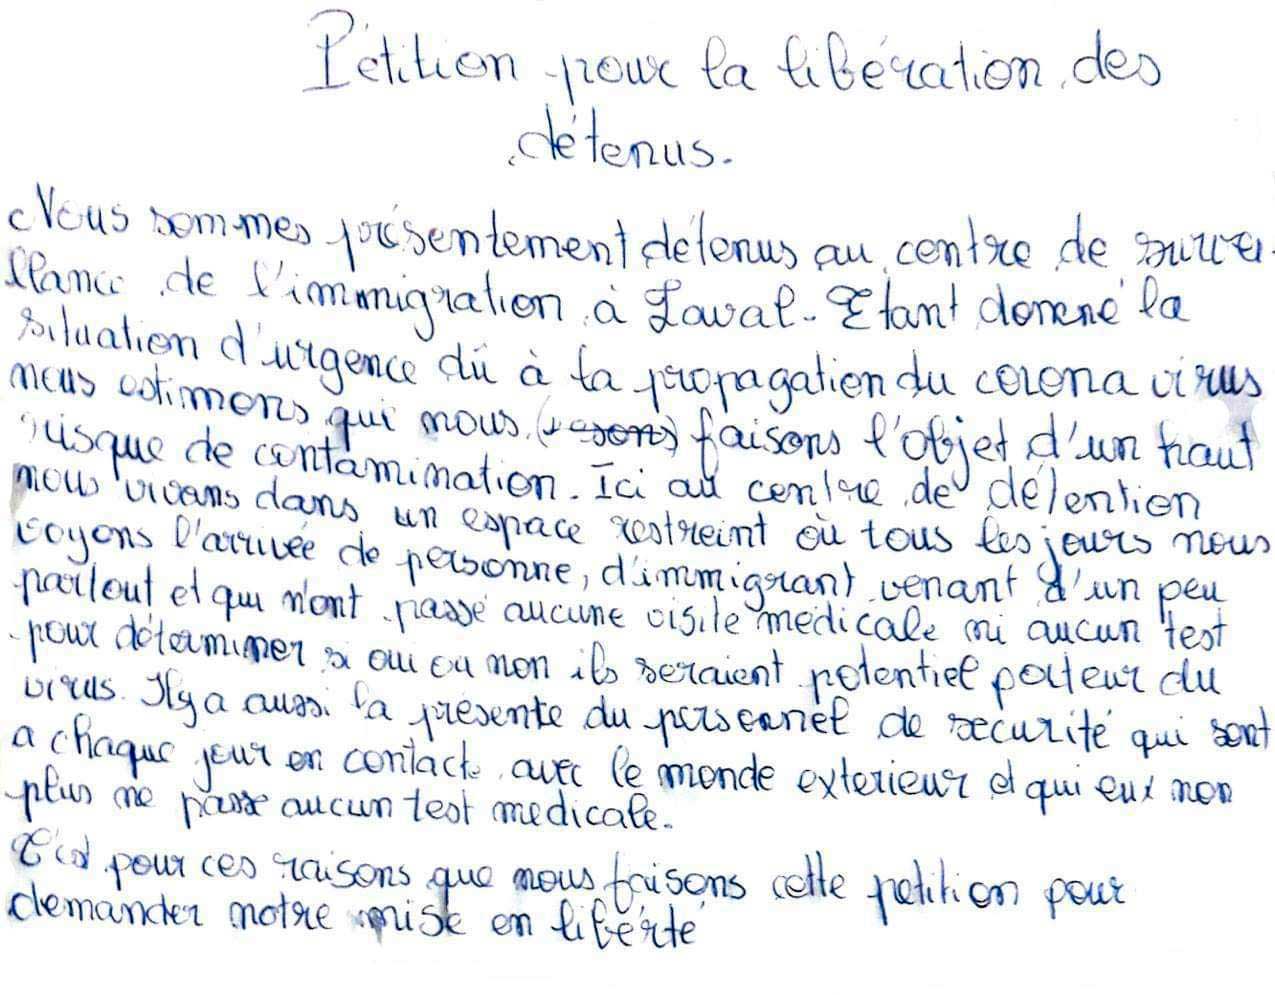 Pétition pour la libération des
détenus.
Nous sommes présentement détenus au centre de survei
llance de l'immigration à Laval. Etant donené la
situation d'urgence dû à la propagation du corona virus
nous estimons qui nous (resons) faisons l'objet d'un haut
risque de contamination. Ici au centre de détention
nous vivons dans un espace restreint où tous les jours nous
voyons l'arrivée de personne, d'immigrant venant d'un peu
partout et qui n'ont passé aucune visite médicale ni aucun test
pour déterminer si oui ou non ils seraient potentiel porteur du
virus. Il y a aussi la présente du personnel de sécurité qui sont
a chaque jour en contact avec le monde exterieur et qui eux non
plus ne passe aucun test medicale.
C'est pour ces raisons que nous faisons cette petition pour
demander notre mise en libérté